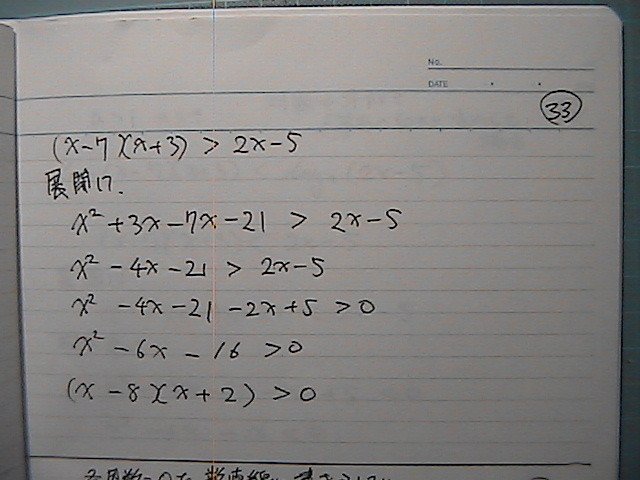 No.
DATE
33
(x-7)(x+3) > 2x-5
展開して.
x² +3x-7x-21 > 2x-5
x² -4x-21 > 2x-5
x² -4x-21 -2x+5 >0
x² -6x -16 >0
(x -8)(x+2) >0